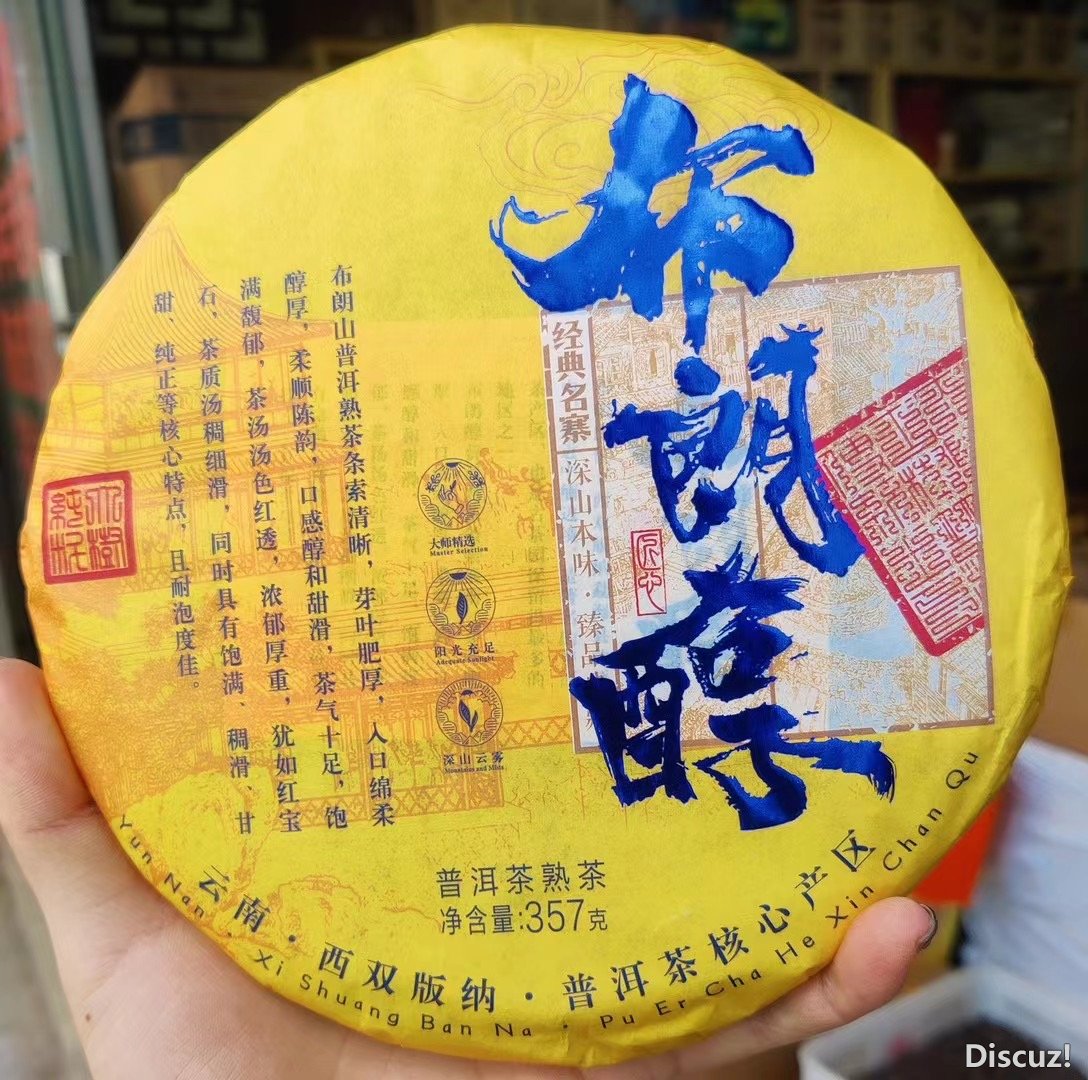 布朗醇
经典名寨
深山本味·臻品
匠心
布朗山普洱熟茶条索清晰，芽叶肥厚，入口绵柔
醇厚，柔顺陈韵，口感醇和甜滑，茶气十足，饱
满馥郁，茶汤汤色红透，浓郁厚重，犹如红宝
石，茶质汤稠细滑，同时具有饱满、稠滑、甘
甜、纯正等核心特点，且耐泡度佳。
大师精选
Master Selection
阳光充足
Adequate Sunlight
深山云雾
Mountains and Mists
大樹
純料
普洱茶熟茶
净含量:357克
云南·西双版纳·普洱茶核心产区
Yun Nan · Xi Shuang Ban Na · Pu Er Cha He Xin Chan Qu
Discuz!